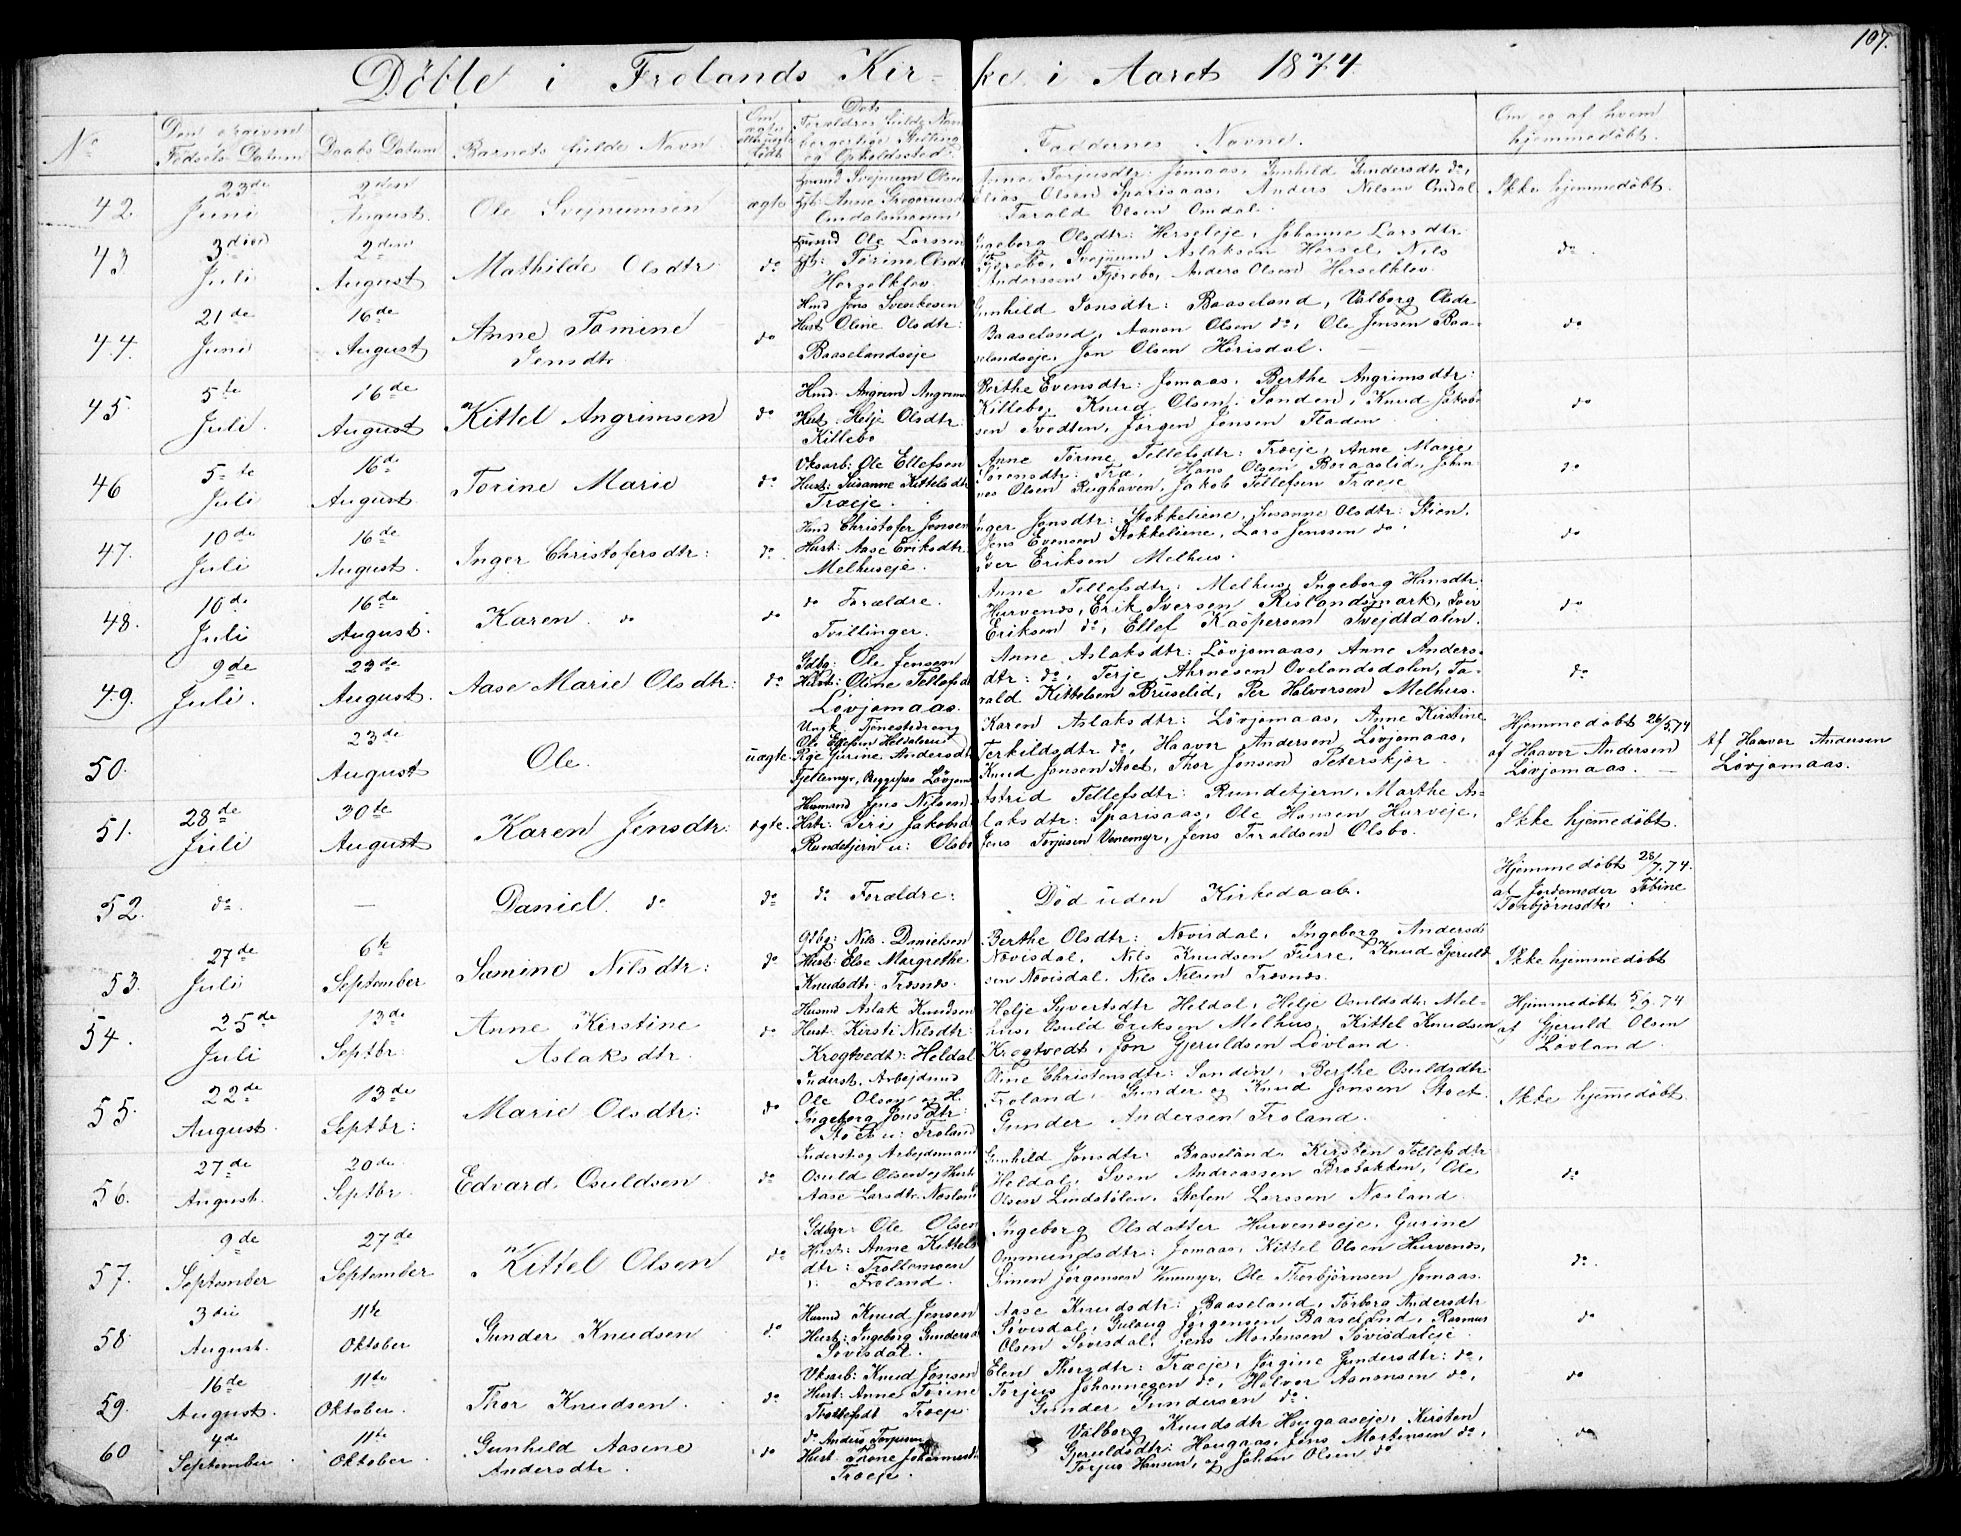 107.
Döbte i Frolands Kir- ke i Aaret 1874.
No
Den opgivne Fødsels Datum
Daabs Datum
Barnets fulde Navn
Om ægte eller uægte født
Dets Forældres fulde Navn borgerlige Stilling og Opholdssted
Faddernes Navne.
Om og af hvem hjemmedøbt.
42 23de Juni 2den August. Ole Svejnumsen ægte
Husmd Svejnum Olsen
Hst: Anne Gregoriusd
Omdalsmoen
Anne Torjusdtr: Jomaas, Gunhild Gundersdtr do,
Elias Olsen Sparisaas, Anders Nilsen Omdal
Tarald Olsen Omdal.
Ikke hjemmedøbt.
43 3die Juli 2den August Mathilde Olsdtr do
Husmd Ole Larssen
Hst: Torine Olsdt
Herselklev
Ingeborg Olsdtr: Herseleje, Johanne Larsdtr
Fjørebo, Svejnum Aslaksen Hersel, Nils
Anderssen Fjørebo, Anders Olsen Herselklev.
do
44. 21de Juni 16de August Anne Tomine Jensdtr do
Hmd Jens Svenkesen
Hust Oline Olsdtr:
Baaselandseje
Gunhild Jonsdtr: Baaseland, Valborg Olsdr
Baaseland, Aanon Olsen do, Ole Jensen Baa-
selandseje, Jon Olsen Hørisdal.
do
45. 5te Juli. 16de August Kittel Angrimsen do
Hmd. Angrim Angrims
Hust: Helje Olsdtr:
Killebo
Berthe Evensdtr: Jomaas, Berthe Angrimsdtr:
Killebo, Knud Olsen Sanden, Knud Jakob-
sen Tvedten, Jørgen Jensen Fladen
do
46 5te Juli 16de August Torine Marie do
Vksarb: Ole Ellefsen
Hust: Susanne Kittelsdtr
Træeje.
Anne Torine Tellefsdtr: Træeje, Anne Marie
Sørensdtr: Træ, Hans Olsen Boraaslid, Johan-
nes Olsen Rughaven, Jakob Tellefsen Træeje
do
47. 10de Juli 16de August. Inger Christofersdtr: do
Hmd Christofer Jensen
Hust: Aase Eriksdtr:
Melhuseje.
Inger Jonsdtr: Stokkeliene, Susanne Olsdtr: Stien,
Jens Evensen Stokkeliene, Lars Jenssen do
Iver Eriksen Melhus.
do
48. 10de Juli 16de August. Karen. do do
do Forældre.
Tvillinger.
Anne Tellefsdtr: Melhus, Ingeborg Hansdtr:
Hurvenes, Erik Iversen Rislandsmark, Iver
Eriksen do, Ellef Kaspersen Svejdtdalen.
do
49. 9de Juli. 23de August Aase Marie Olsdtr: do
Gdbg: Ole Jensen
Hust: Oline Tellefsdt
Løvjomaas.
Anne Aslaksdtr: Løvjomaas, Anne Anders-
dtr: do, Terje Ahrnesen Ovelandsdalen, Ta-
rald Kittelsen Bruselid, Per Halvorsen Melhus.
do
50. 23de August Ole. uægte.
Ungk. Tjenestedreng
Ole Ellefsen
Pige Gurine Andersdt
Fjellemyr, Løvjom
Karen Aslaksdtr: Løvjomaas, Anne Kirstine
Terkildsdtr do, Haavor Andersen Løvjomaas,
Knud Jensen Stoet, Thor Jensen Peterskjær.
Hjemmedøbt 26/5.74
af Haavor Andersen
Løvjomaas.
Af Haavor Andersen
Løvjomaas.
51. 28de Juli 30te August Karen Jensdtr: ægte.
Husmand Jens Nilsen
Hstr: Siri Jakobsd
Rundetjern u: Olsbo
Astrid Tellefsdtr: Rundetjern, Marthe As-
laksdtr: Sparisaas, Ole Hansen Hurveje,
Jens Torjusen Venemyr, Jens Taraldsen Olsbo.
Ikke hjemmedøbt.
52. do. — Daniel. do do
do Forældre:
Død uden Kirkedaab.
Hjemmedøbt 28/7.74.
af Jordemoder Tobine
Torbjørnsdtr.
53. 27de Juli 6te September Samine Nilsdtr: do
Gdbg: Nils Danielsen
Hust: Else Margrethe
Knudsdtr: Træsnes.
Berthe Olsdtr: Nøvisdal, Ingeborg Andersd
Nøvisdal, Nils Knudsen Furre, Knud Gjeruld
sen Nøvisdal, Nils Nilsen Træsnes.
Ikke hjemmedøbt
54. 25de Juli 13de Septbr: Anne Kirstine Aslaksdtr. do
Husmd Aslak Knudsen
Hust: Kirsti Nilsdtr:
Krogtvedt: Heldal
Helje Syvertsdtr Heldal, Helje Osuldsdtr Mel-
hus, Osuld Eriksen Melhus, Kittel Knudsen
Krogtvedt, Jon Gjeruldsen Løvland.
Hjemmedøbt 5/9.74
af Gjeruld Olsen
Løvland.
55. 22de August. 13de Septbr: Marie Olsdtr: do
Inderst. Arbejdsmd
Ole Olsen og H.
Ingeborg Jonsdtr:
Stoet u: Froland
Oline Christensdtr: Sanden, Berthe Osuldsdtr
Froland, Gunder og Knud Jensen Stoet
Gunder Andersen Froland.
Ikke hjemmedøbt.
56. 27de August. 20de Septbr. Edvard Osuldsen do
Inderst og Arbejdsmand
Osuld Olsen og Hust:
Aase Larsdtr. Næsland
Gunhild Jonsdtr: Baaseland, Kirsten Tellefsdtr
Heldal, Sven Andreassen Brobakken, Ole
Olsen Lindstølen, Stefen Larssen Næsland.
do
57. 9de September 27de September Kittel Olsen do
Gdbgr: Ole Olsen
Hust: Anne Kittels
dtr: Trollemoen
Froland.
Ingeborg Olsdatter Hurvenæseje, Gurine
Ommundsdtr: Jomaas, Kittel Olsen Hurvenes,
Simen Jørgensen Vinemyr, Ole Thorbjørnsen Jomaas.
do.
58. 3die August. 11te Oktober Gunder Knudsen do
Husmd Knud Jensen
Hust: Ingeborg Gundersd
Søvisdal.
Aase Knudsdtr: Baaseland, Torborg Andersdtr
Søvisdal, Gulaug Jørgensen Baaseland, Rasmus
Olsen Søvisdal, Jens Mortensen Søvisdaleje
do
59. 16de August. 11te Oktober. Thor Knudsen. do
Vksarb: Knud Jensen
Hust: Anne Torine
Træep.
Elen Thorsdtr: Træeje, Jørgine Gundersdtr: do,
Torjus Johannesen do, Halvor Aanonsen do,
Gunder Gundersen do.
do
60 4de September. 11te Oktober. Gunhild Aasine Andersdtr. do
do Anders Torjusen
Hust. Trone Johannesdt
Træep.
Valborg Knudsdtr Hougaaseje, Kirsten
Gjeruldsdtr: Hougaas, Jens Mortensen do,
Torjus Hansen, og Johan Olsen do
do